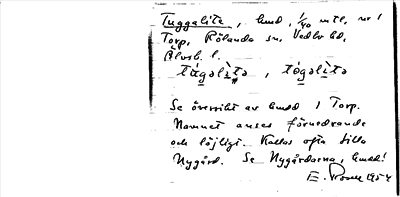 Tuggalite, hmd, 1/40 mtl, nr 1
Torp, Rölanda sn, Vedbo hd,
Älvsb. l.
túgəlìtə, tógəlìtə
Se översikt av hmd 1 Torp.
Namnet anses förnedrande
och löjligt. Kallas ofta Lilla
Nygård. Se Nygårdarna, hmd!
E. 1954